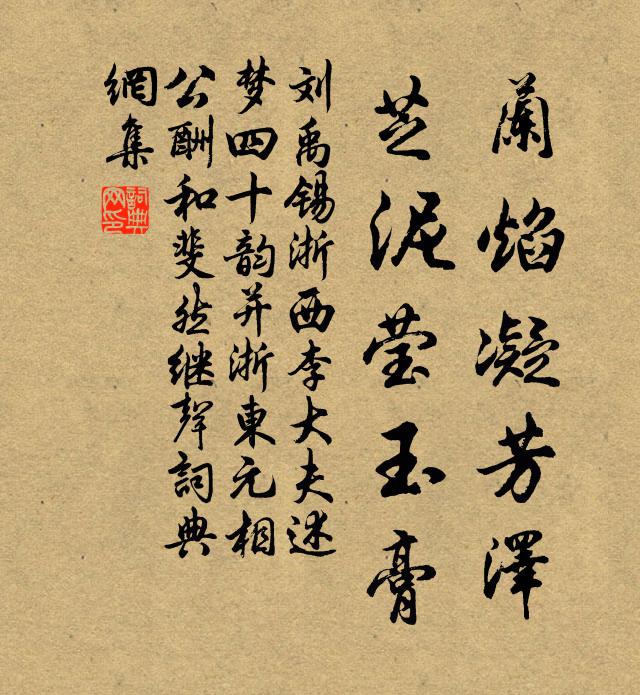 蘭焰凝芳澤
芝泥莹玉膏
刘禹锡浙西李大夫述
梦四十韵并浙東元相
公酬和斐然继聲詞典
網集
詞典网印